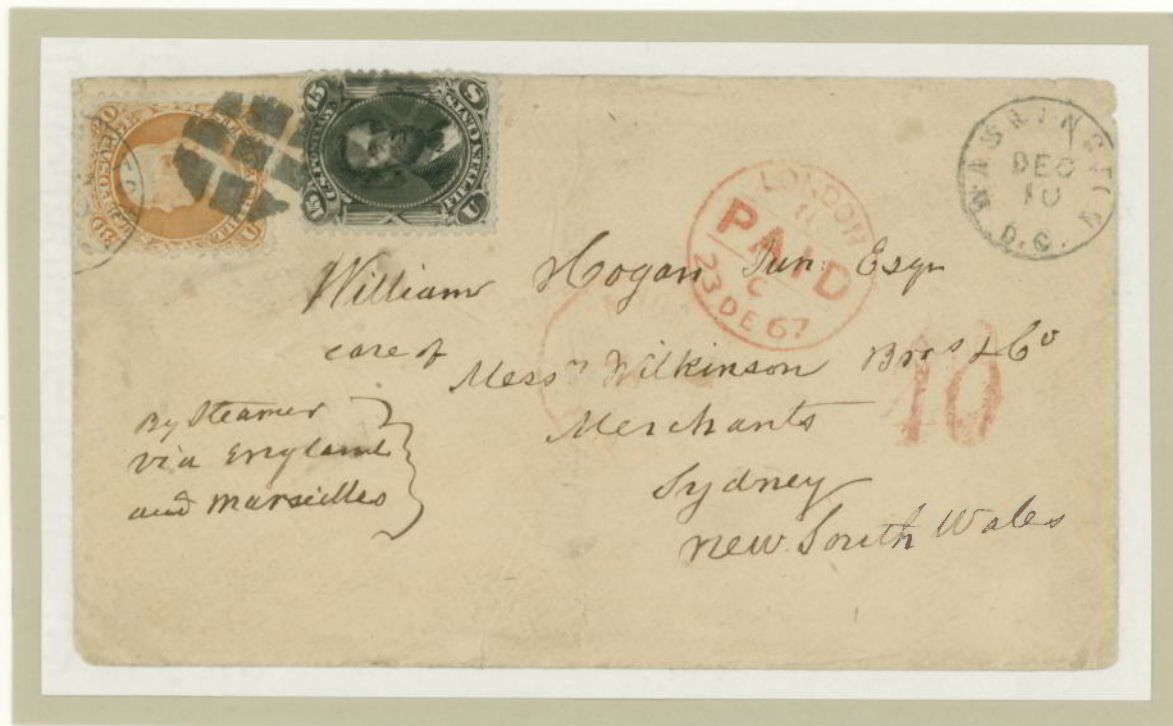 WASHINGTON
DEC
10
D.C.
15
15
U
S
FIFTEEN CENTS
U.S. POSTAGE
30
LONDON
PAID
C
23 DE 67
William Hogan Jun: Esqr
care of
Messrs Wilkinson Bros & Co
Merchants
Sydney
New South Wales
10
By Steamer
via England
and Marseilles